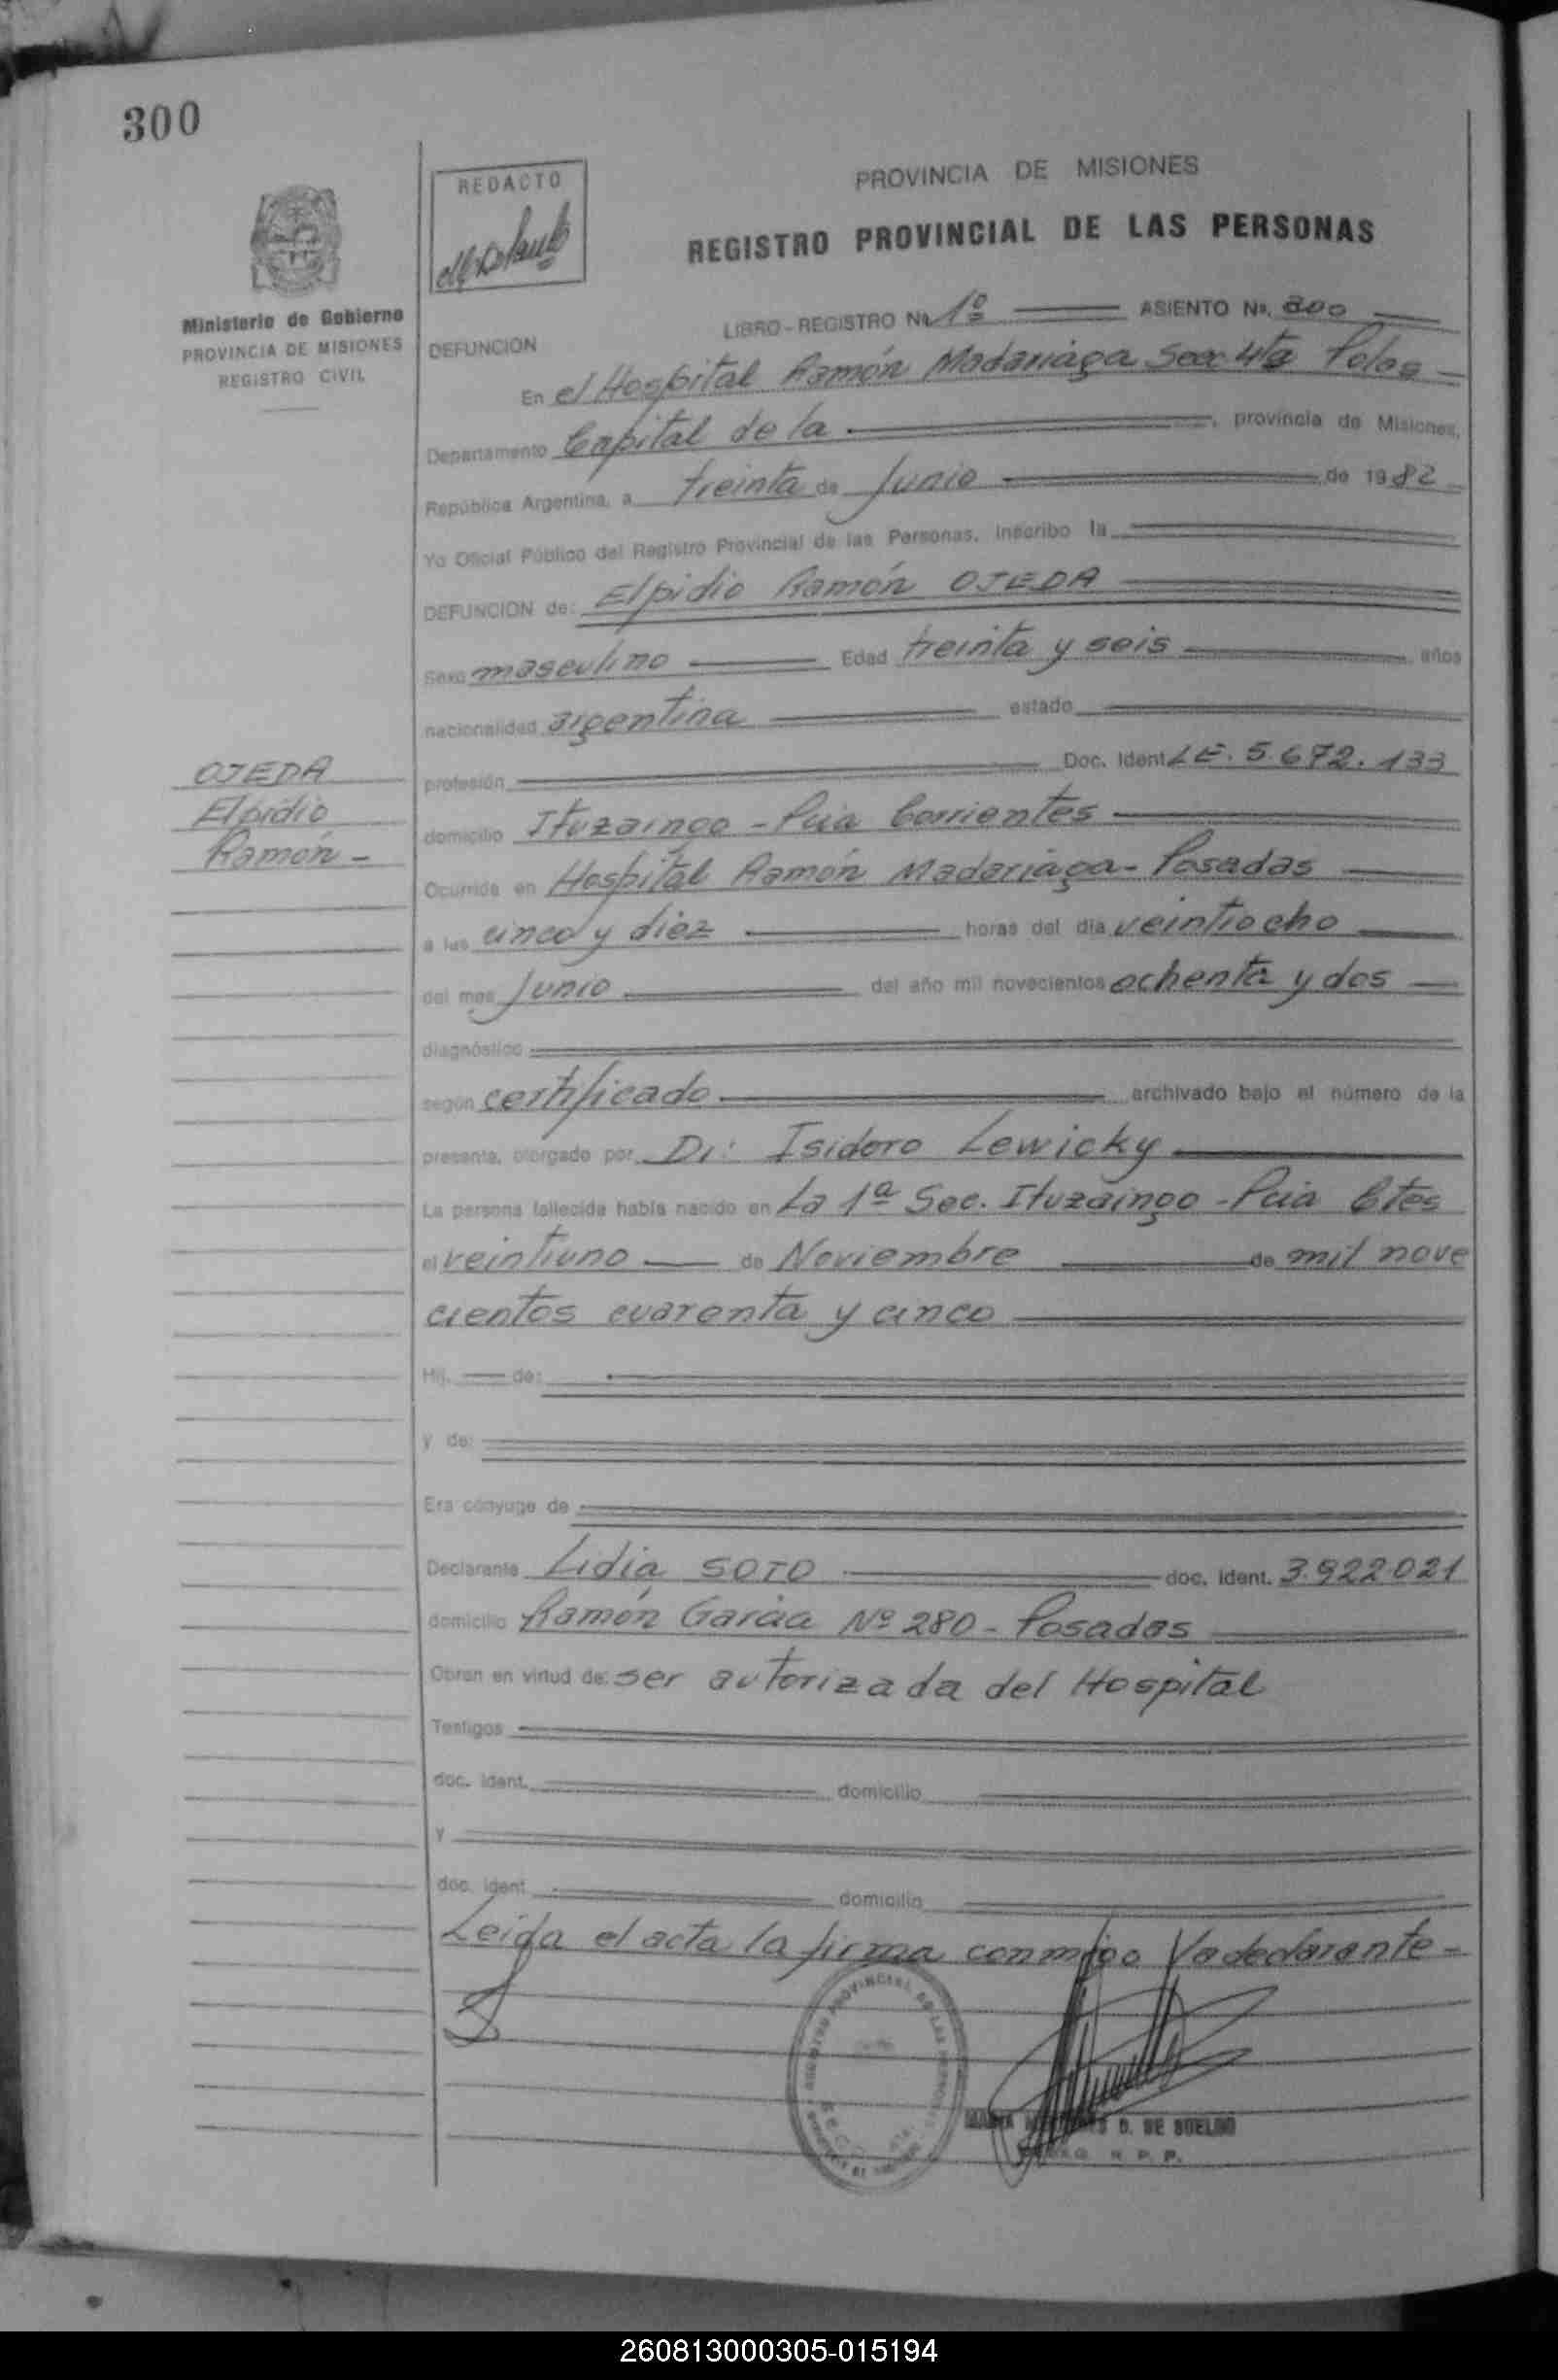 300
REDACTO
PROVINCIA DE MISIONES
REGISTRO PROVINCIAL DE LAS PERSONAS
Ministerio de Gobierno
PROVINCIA DE MISIONES
REGISTRO CIVIL
LIBRO - REGISTRO Nº 1º ASIENTO Nº. 300
DEFUNCION
En el Hospital Ramón Madariaga Secc 4ta
Departamento Capital de la , provincia de Misiones,
República Argentina, a treinta de Junio de 1982
Yo Oficial Público del Registro Provincial de las Personas, inscribo la
DEFUNCION de: Elpidio Ramón OJEDA
Sexo masculino Edad treinta y seis años
nacionalidad argentina estado
profesión Doc. Ident LE. 5.672.133
OJEDA
Elpidio
Ramón -
domicilio Ituzaingo - Pcia Corrientes
Ocurrida en Hospital Ramón Madariaga - Posadas
a las cinco y diez horas del día veintiocho
del mes Junio del año mil novecientos ochenta y dos
diagnóstico
según certificado archivado bajo el número de la
presente, otorgado por Dr: Isidoro Lewicky
La persona fallecida había nacido en La 1ª Sec. Ituzaingo - Pcia Ctes
el veintiuno de Noviembre de mil nove
cientos cuarenta y cinco
Hij. de:
y de:
Era cónyuge de
Declarante Lidia SOTO doc. ident. 3.922.021
domicilio Ramón Garcia Nº 280 - Posadas
Obran en virtud de: ser autorizada del Hospital
Testigos
doc. ident. domicilio
y
doc. ident. domicilio
Leida el acta la firma conmigo la declarante -
REGISTRO PROVINCIAL DE LAS PERSONAS
MARIA D. DE SUELDO
R. P. P.
260813000305-015194